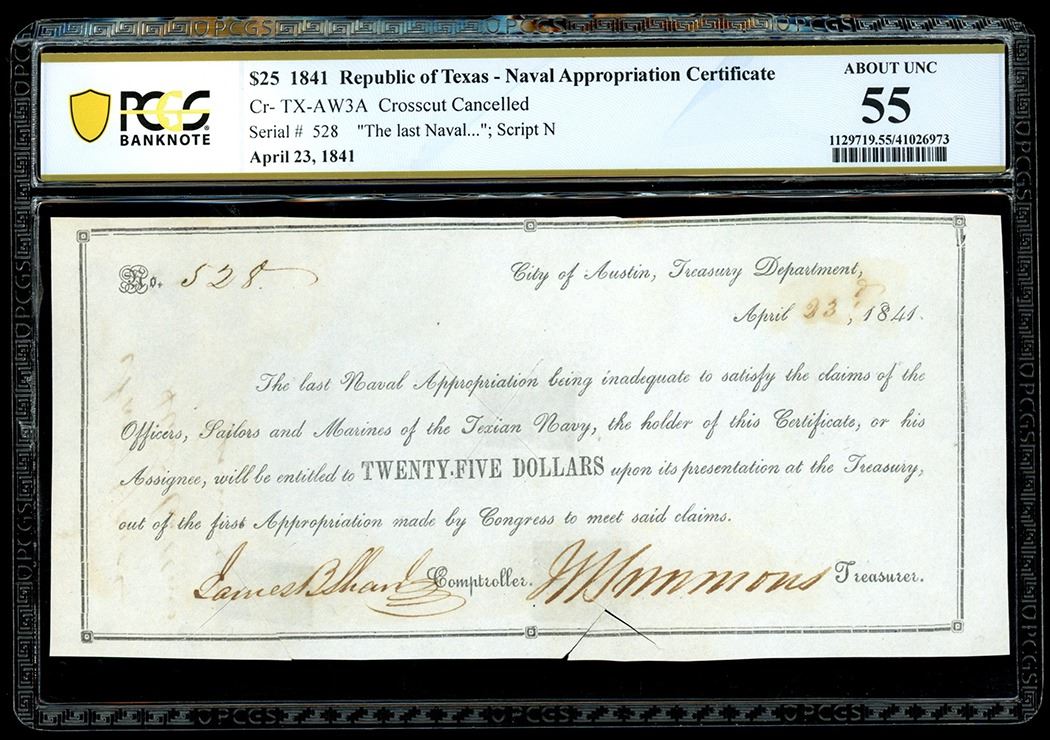 PCGS PCGS PCGS PCGS
$25 1841 Republic of Texas - Naval Appropriation Certificate
Cr- TX-AW3A Crosscut Cancelled
Serial # 528 "The last Naval..."; Script N
April 23, 1841
PCGS
BANKNOTE
ABOUT UNC
55
1129719.55/41026973
No. 528.
City of Austin, Treasury Department,
April 23d, 1841.
The last Naval Appropriation being inadequate to satisfy the claims of the
Officers, Sailors and Marines of the Texian Navy, the holder of this Certificate, or his
Assignee, will be entitled to TWENTY-FIVE DOLLARS upon its presentation at the Treasury,
out of the first Appropriation made by Congress to meet said claims.
James B Shaw Comptroller. W Simmons Treasurer.
PCGS PCGS PCGS PCGS